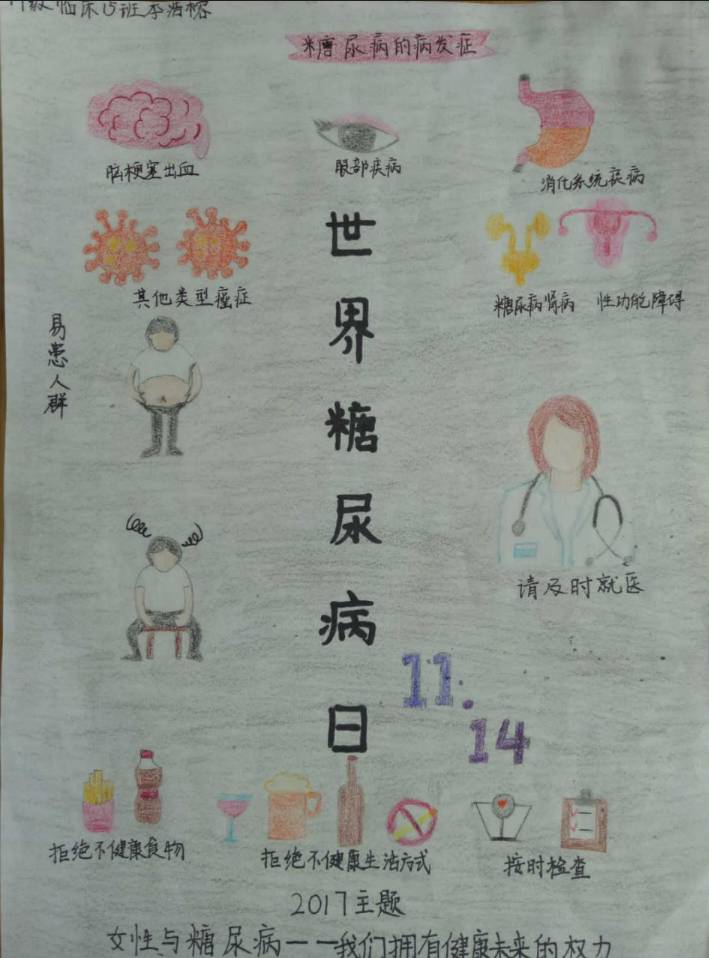 级临床15班李洁榕
糖尿病的病发症
脑梗塞出血
眼部疾病
消化系统疾病
其他类型癌症
糖尿病肾病
性功能障碍
易患人群
世界糖尿病日
请及时就医
11.14
拒绝不健康食物
拒绝不健康生活方式
按时检查
2017主题
女性与糖尿病——我们拥有健康未来的权力